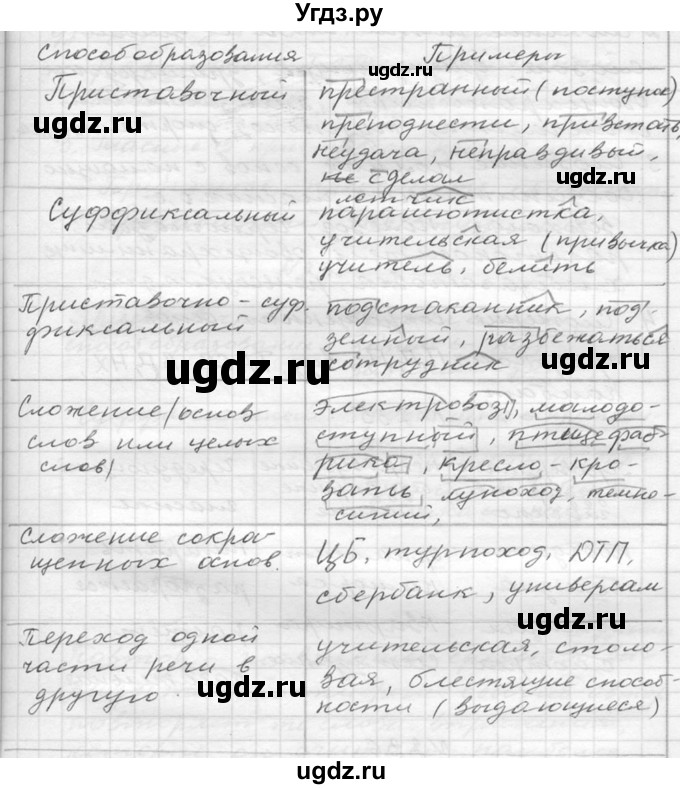 Угдз.ру
Способ образования
Примеры
ugdz.ru
Приставочный
престранный (поступок)
ugdz.ru
преподнести, привстать,
неудача, неправдивый,
ugdz.ru
не сделал
Суффиксальный
летчик
парашютистка,
учительская (привычка)
учитель, белить
Приставочно-суф-
фиксальный
подстаканник, под
земный, разбежаться
сотрудник
ugdz.ru
ugdz.ru
Сложение (основ
слов или целых
слов)
электровоз, малодо-
ступный, птицефаб-
рика, кресло-кро-
вать, луноход, темно-
синий,
ugdz.ru
Сложение сокра-
щенных основ.
ЦБ, турпоход, ДТП,
сбербанк, универсам
ugdz.ru
Переход одной
части речи в
другую.
учительская, столо-
вая, блестящие способ-
ности (выдающиеся)
ugdz.ru
ugdz.ru
ugdz.ru